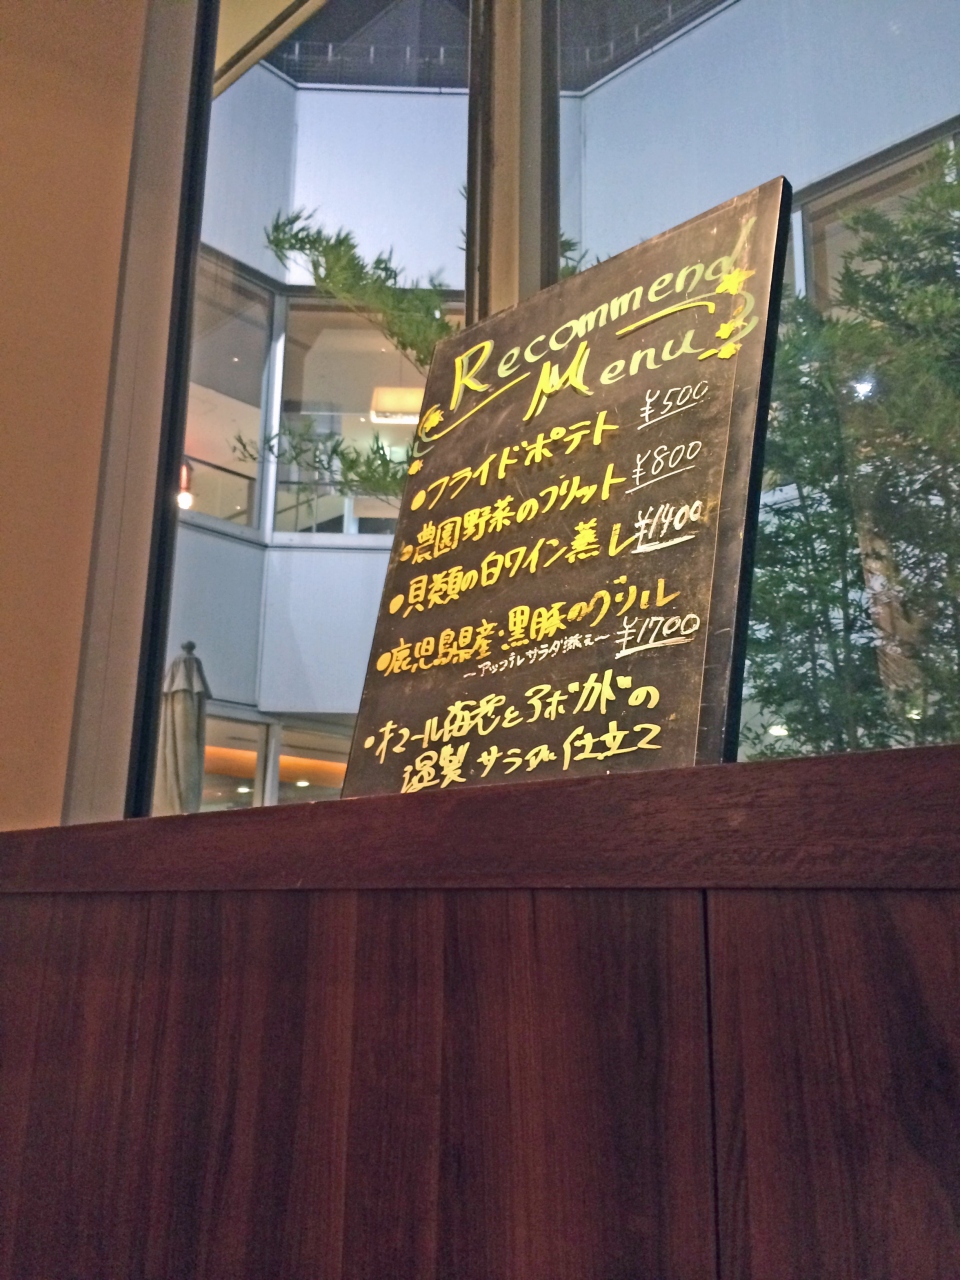 Recommend
Menu
●フライドポテト ¥500
●農園野菜のフリット ¥800
●貝類の白ワイン蒸し ¥1400
●鹿児島県産・黒豚のグリル
～アップルサラダ添え～ ¥1700
●オマール海老とアボカドの
サラダ仕立て